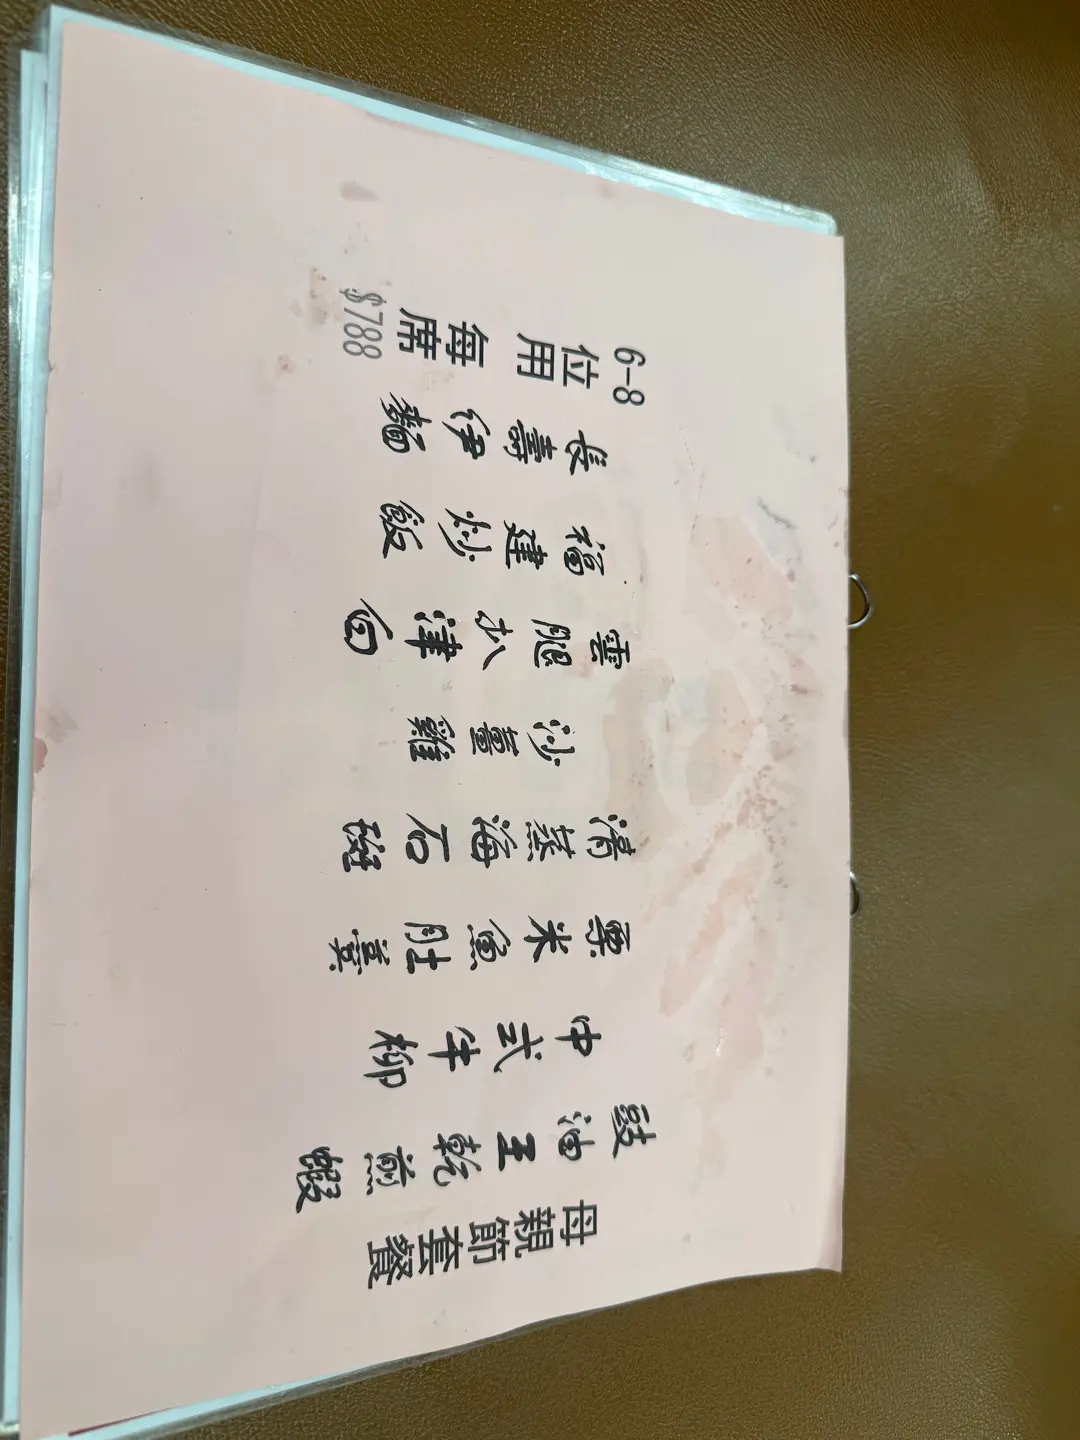 母親節套餐
豉油王乾煎蝦
中式牛柳
粟米魚肚羹
清蒸海石斑
沙薑雞
雲腿扒津白
福建炒飯
長壽伊麵
6-8位用 每席
$788